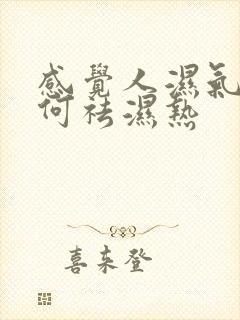 感覺人濕氣
何祛濕熱
喜来登